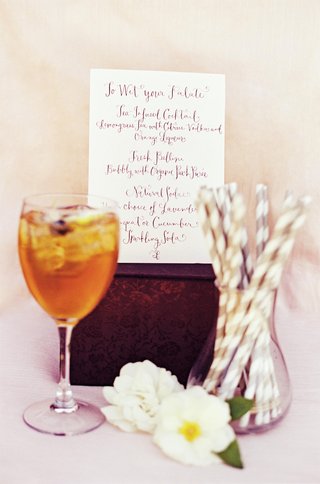 To Wet your Palate
Tea Infused Cocktail
Lemongrass Tea with Citrus Vodka and
Orange Liqueur
Fresh Bellini
Bubbly with Organic Peach Puree
Natural Sodas
choice of Lavender
or Cucumber
Sparkling Soda